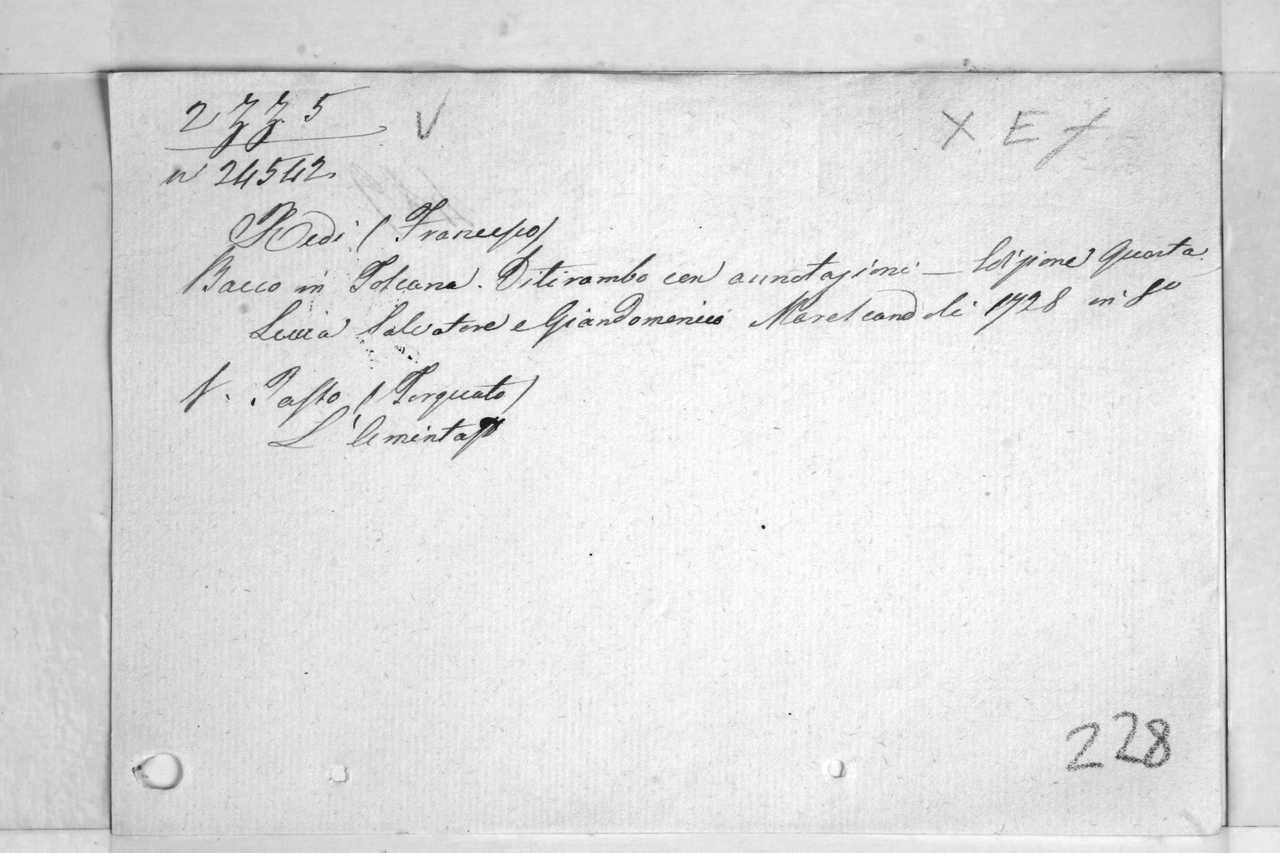 2775 V X E f
n 24542
Redi (Francesco)
Bacco in Toscana. Ditirambo con annotazioni — Edizione Quarta.
Lucca Salvatore e Giandomenico Marescandoli 1728 in 8º
V. Tasso (Torquato)
L'Aminta
228